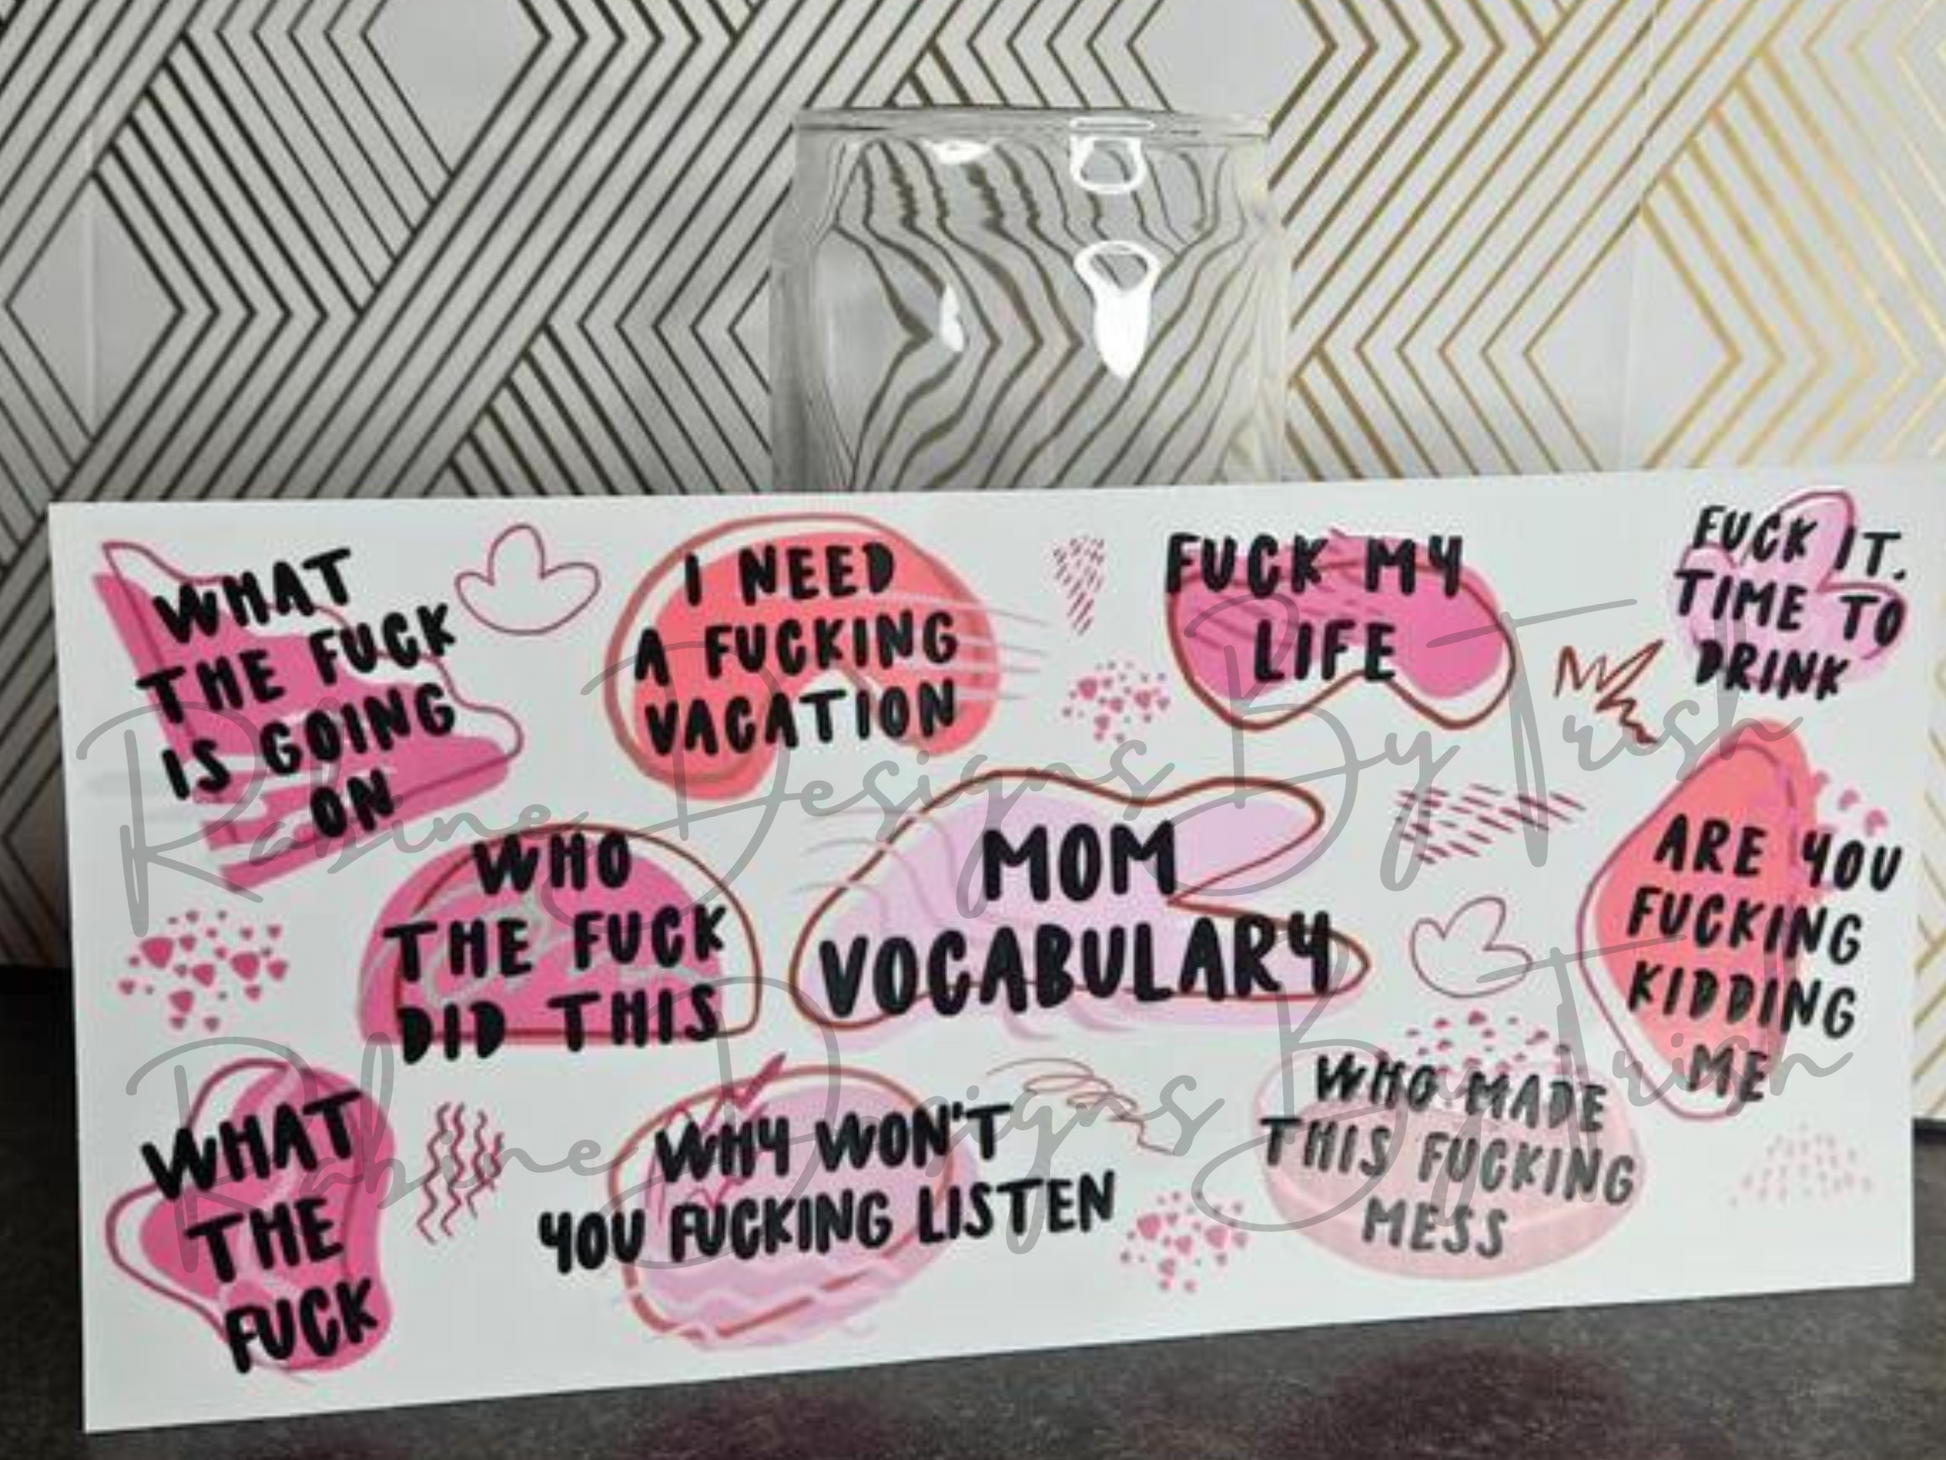 WHAT
THE FUCK
IS GOING
ON
I NEED
A FUCKING
VACATION
FUCK MY
LIFE
FUCK IT.
TIME TO
DRINK
WHO
THE FUCK
DID THIS
MOM
VOCABULARY
ARE YOU
FUCKING
KIDDING
ME
WHAT
THE
FUCK
WHY WON'T
YOU FUCKING LISTEN
WHO MADE
THIS FUCKING
MESS
Rabine Designs By Trish
Rabine Designs By Trish